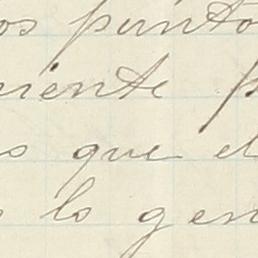 os puntos
ciente p
s que el
s lo gen